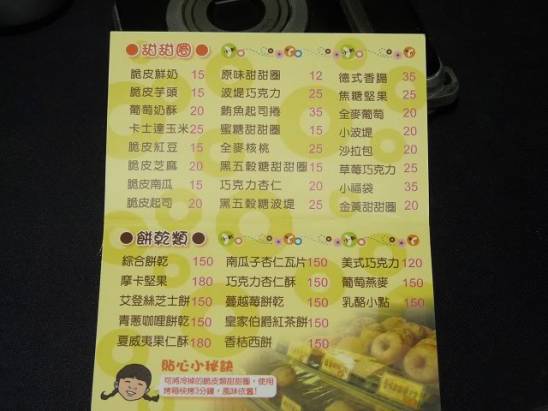 甜甜圈
脆皮鮮奶 15 原味甜甜圈 12 德式香腸 35
脆皮芋頭 15 波堤巧克力 25 焦糖堅果 25
葡萄奶酥 20 鮪魚起司捲 35 全麥葡萄 20
卡士達玉米 25 蜜糖甜甜圈 15 小波堤 20
脆皮紅豆 15 全麥核桃 25 沙拉包 20
脆皮芝麻 20 黑五穀糖甜甜圈 15 草莓巧克力 25
脆皮南瓜 15 巧克力杏仁 20 小福袋 35
脆皮起司 20 黑五穀糖波堤 25 金黃甜甜圈 20
餅乾類
綜合餅乾 150 南瓜子杏仁瓦片 150 美式巧克力 120
摩卡堅果 180 巧克力杏仁酥 150 葡萄燕麥 150
艾登絲芝士餅 150 蔓越莓餅乾 150 乳酪小點 150
青蔥咖哩餅乾 150 皇家伯爵紅茶餅 150
夏威夷果仁酥 180 香桔西餅 150
貼心小秘訣
可將冷掉的脆皮類甜甜圈，使用
烤箱快烤3分鐘，風味依舊！